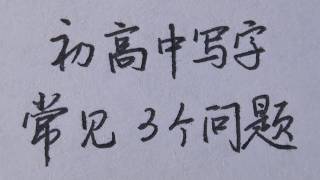 初高中写字
常见3个问题